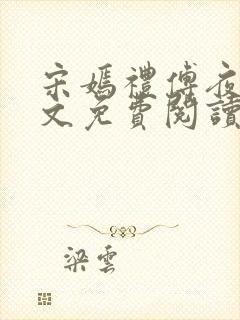 宋嫣禮傅夜
文免費閱讀
梁雲